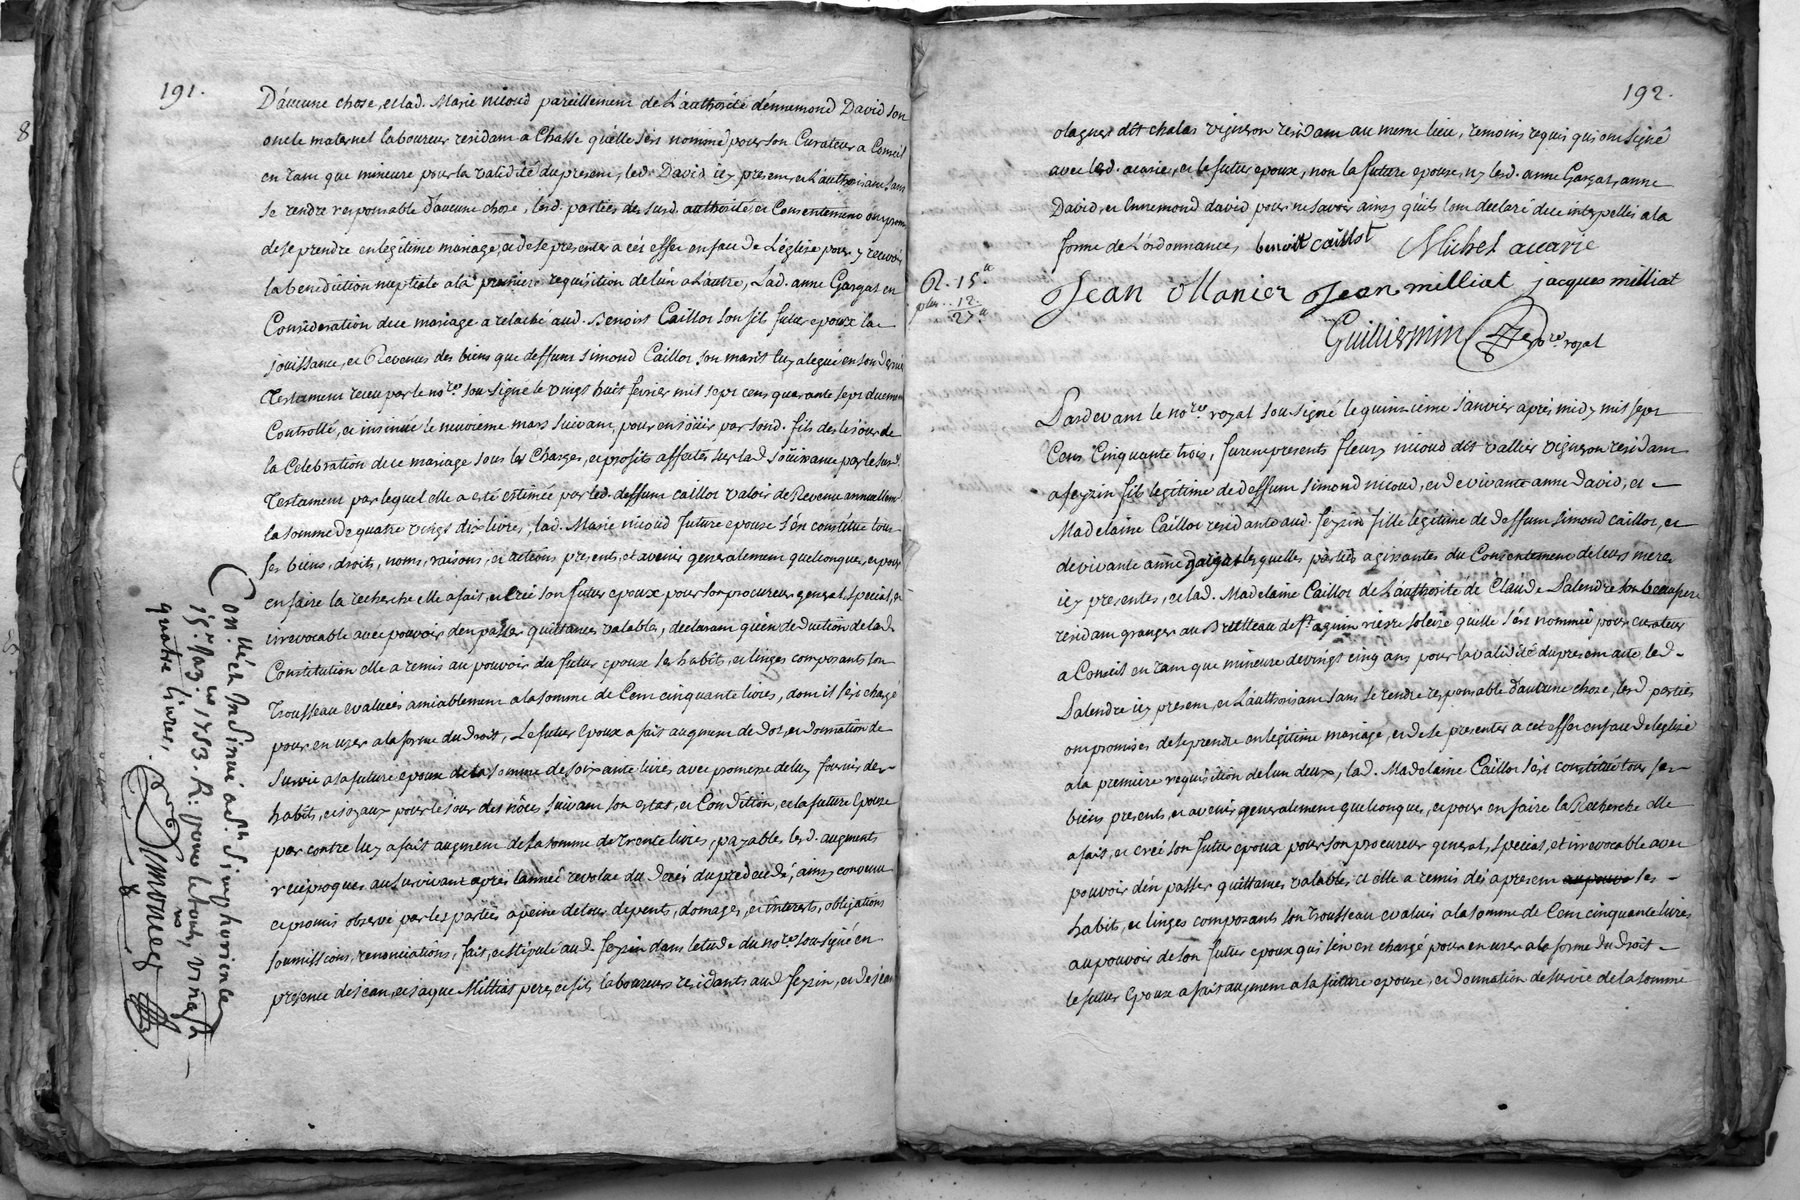 191.
D'aucune chose, et lad. Marie nicoud pareillement de L'authorité d'ennemond David son
oncle maternel laboureur residant a Chasse qu'elle s'est nommé pour son Curateur a Conseil
en tant que mineure pour la validité du present, led. David icy present, et L'authorisant sans
se rendre responsable d'aucune chose, lesd. parties de susd. authorité, et Consentement ont promis
de se prendre en legitime mariage, et de se presenter a cet effet en face de L'église pour y recevoir
la benediction nuptiale a la premiere requisition de l'un a L'autre, Lad. anne Gargat en
Consideration de ce mariage a relaché aud. Benoist Caillot son fils futur epoux la
jouissance, et Revenus des biens que deffunt simond Caillot son marit luy a legué en son dernier
Testament receu par le nore sousigné le vingt huit fevrier mil sept cens quarante sept duement
Controllé, et insinué le neuvieme mars suivant, pour en jouir par sond. fils des le jour de
la Celebration de ce mariage sous les Charges, et profits affectés sur lad. jouissance par le susd.
Testament par lequel elle a esté estimée par led. deffunt caillot valoir de Revenu annuellement
la somme de quatre vingt dix livres, lad. Marie nicoud future epouse s'en constitue tous
ses biens, droits, noms, raisons, et actions presents, et avenir generalement quelconques, et pour
en faire la recherche elle a fait, et créé son futur epoux pour son procureur general special, et
irrevocable avec pouvoir d'en passer quittances valables, declarant qu'en deduction de lad.
Constitution elle a remis au pouvoir du futur epoux ses habits, et linges composants son
Trousseau evaluées amiablement a la somme de Cent cinquante livres, dont il s'est chargé
pour en user a la forme du droit, Le futur Epoux a fait augment de dot, et donnation de
survie a sa future epouse de la somme de soixante livres avec promesse de luy fournir des
habits, et joyaux pour le jour des nôces suivant son estat, et Condition, et la future Epouse
par contre luy a fait augment de la somme de Trente livres, payables lesd. augments
reciproques au survivant apres l'année revolue du decés du predecedé, ainsy convenu
et promis observé par les parties a peine de tous depents, domages, et interests, obligations
soumissions, renonciations, fait, et stipulé aud. feyzin dans letude du nore sousigné en
presence de jean, et jaque Milliat pere, et fils laboureurs residants aud feyzin, et de jean
Conllé et Insinué a St. Simphorien le
15. janv. 1753. R: pour le tout, vingt
quatre livres.
192.
olagner dit chalas vigneron residant au meme lieu, temoins requis qui ont signé
avec led. avarie, et le futur epoux, non la future epouse, ny lesd. anne Gargat, anne
David, et Ennemond david pour ne savoir ainsy qu'ils l'ont declaré de ce interpellés a la
forme de L'ordonnance, benoit caillot Michel avarie
R. 15.
plus.. 12.
27.
Jean Manier Jean milliat jacques milliat
Guilliermin nore royal
Pardevant le nore royal sousigné le quinzieme Janvier aprés midy mil sept
Cens Cinquante trois, furent presents fleury nicoud dit vallier vigneron residant
a feyzin fils legitime de deffunt simond nicoud, et de vivante anne David, et
Madelaine Caillot residante aud. feyzin fille legitime de deffunt simond caillot, et
de vivante anne gargat lesquelles parties agissantes du Consentement de leurs meres
icy presentes, et lad. Madelaine Caillot de L'authorité de Claude Lalendre son beaupere
residant granger au Bretteau de St. aguin riere solaise qu'elle s'est nommée pour curateur
a Conseil en tant que mineure de vingt cinq ans pour la validité du present acte, led.
Lalendre icy present, et L'authorisant sans se rendre responsable d'aucune chose, lesd parties
ont promises de se prendre en legitime mariage, et de se presenter a cet effet en face de leglise
a la premiere requisition de lun deux, lad. Madelaine Caillot s'est constituée tous ses
biens presents, et avenir generalement quelconques, et pour en faire la Recherche elle
a fait, et créé son futur epoux pour son procureur general, special, et irrevocable avec
pouvoir d'en passer quittances valables, et elle a remis dés apresent au pouvo ses
habit, et linges composants son Trousseau evalués a la somme de Cent cinquante livres
au pouvoir de son futur epoux qui s'en est chargé pour en user a la forme du Droit
le futur Epoux a fait augment a la future epouse, et donnation de survie de la somme